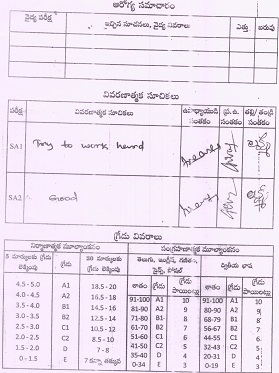 ఆరోగ్య సమాచారం
వైద్య పరీక్ష ఇచ్చిన సూచనలు, వైద్య వివరాలు ఎత్తు బరువు
వివరణాత్మక సూచికలు
పరీక్ష వివరణాత్మక సూచికలు ఉపాధ్యాయుని సంతకం ప్ర.ఉ. సంతకం తల్లి/తండ్రి సంతకం
SA1 Try to work heard
SA2 Good
గ్రేడు వివరాలు
నిర్మాణాత్మక మూల్యాంకనం సంగ్రహణాత్మక మూల్యాంకనం
5 మార్కులకు గ్రేడు లెక్కింపు గ్రేడు 20 మార్కులకు గ్రేడు లెక్కింపు తెలుగు, ఇంగ్లీషు, గణితం, సైన్స్, సోషల్ ద్వితీయ భాష
శాతం గ్రేడు గ్రేడు పాయింట్లు శాతం గ్రేడు గ్రేడు పాయింట్లు
4.5 - 5.0 A1 18.5 - 20 91-100 A1 10 91-100 A1 10
4.0 - 4.5 A2 16.5 - 18 81-90 A2 9 80-90 A2 9
3.5 - 4.0 B1 14.5 - 16 71-80 B1 8 68-79 B1 8
3.0 - 3.5 B2 12.5 - 14 61-70 B2 7 56-67 B2 7
2.5 - 3.0 C1 10.5 - 12 51-60 C1 6 44-55 C1 6
2.0 - 2.5 C2 8.5 - 10 41-50 C2 5 32-43 C2 5
1.5 - 2.0 D 7 - 8 35-40 D 4 20-31 D 4
0 - 1.5 E 7 కన్నా తక్కువ 0-34 E 3 0-19 E 3